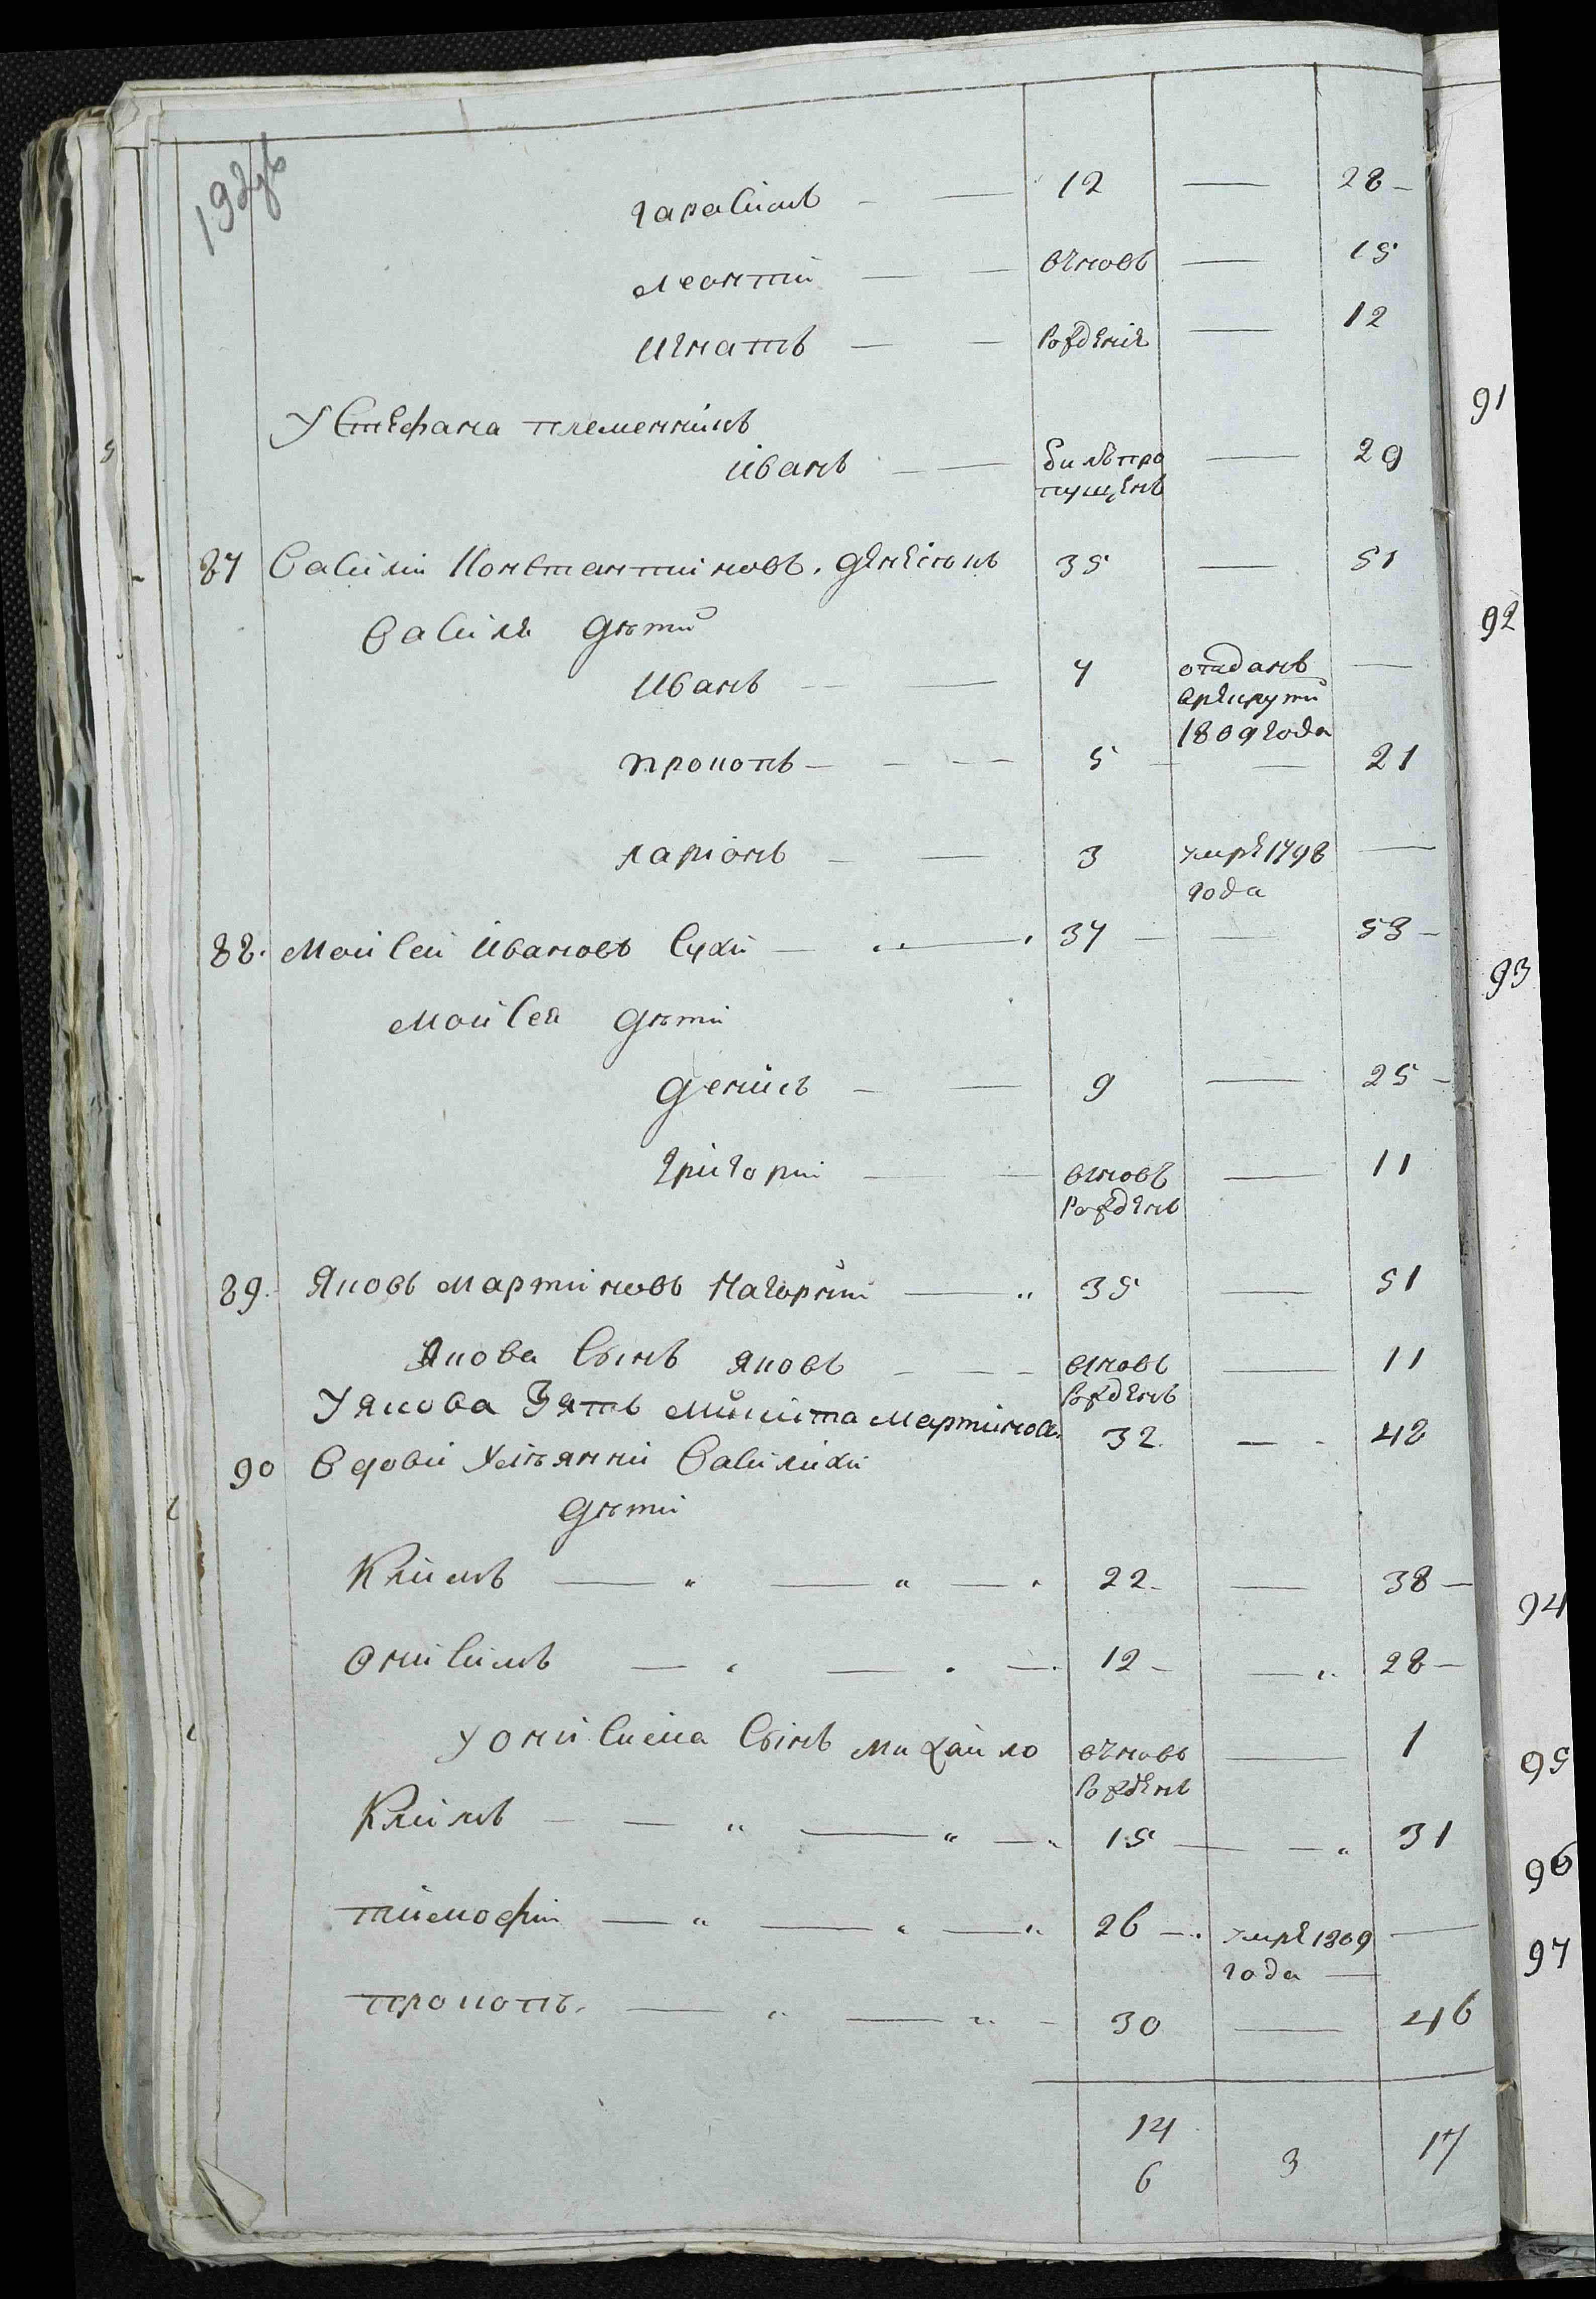 192 об
гарасимъ — — 12 — 28 —
леонтий — — вновъ — 15
игнатъ — — рожденіе — 12
У Стефана племенникъ
іванъ — — билъ про — 29
пущенъ
87 Васили Константиновъ. Денісюкъ 35 — 51
Василя дѣти
иванъ — — 7 отданъ —
врекрути
1809 года
прокопъ — — — 5 — — 21
ларіонъ — — 3 умре 1798 —
года
88. Мойсей Івановъ Сухи — 37 — — 53 —
Мойсея дѣти
денисъ — — 9 — 25 —
григорий — — вновъ — 11
рожденъ
89. Яковъ Мартиновъ Нагорний — 35 — 51
Якова Сынъ яковъ — — — вновъ — 11
рожденъ
У якова Зять Микита Мартинов. 32. — - 48
90 Вдови Улияни Василихи
дѣти
Климъ — " — " — " 22 — — 38 —
Онисимъ — " — " — 12 — — " 28 —
У Онисима Сынъ михайло вновъ — 1
рожденъ
Климъ — — " — " — " 15 — — " 31
тимофий — " — " — " 26 — умре 1809 —
года —
прокопъ. — " — " - 30 — 46
14 3 17
6
91
92
93
94
95
96
97